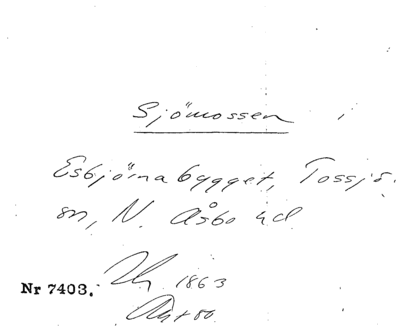 Sjömossen i
Esbjörnabygget, Tossjö
sn, N. Åsbo hd
1863
Nr 7403.